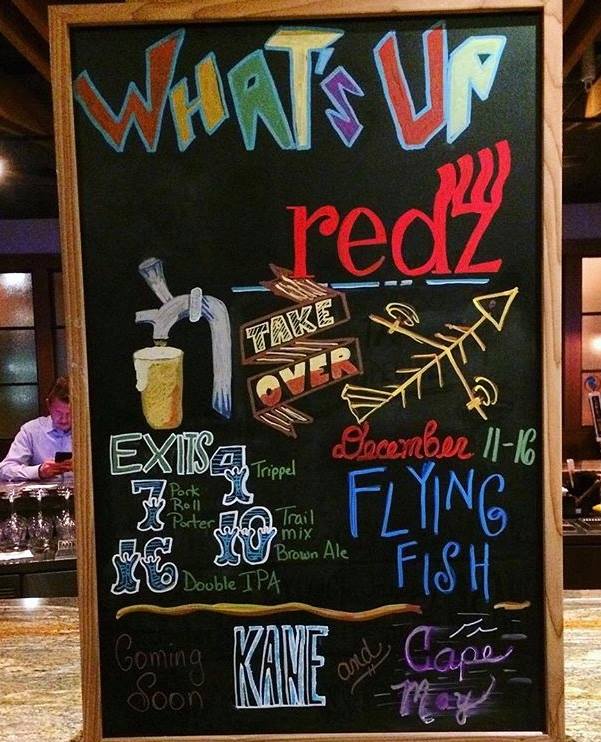 WHAT'S UP
redz
TAKE
OVER
December 11-16
EXITS 4 Trippel
7 Pork
Roll
Porter
10 Trail
mix
Brown Ale
16 Double IPA
FLYING
FISH
Coming
Soon
KANE
and
Cape
May